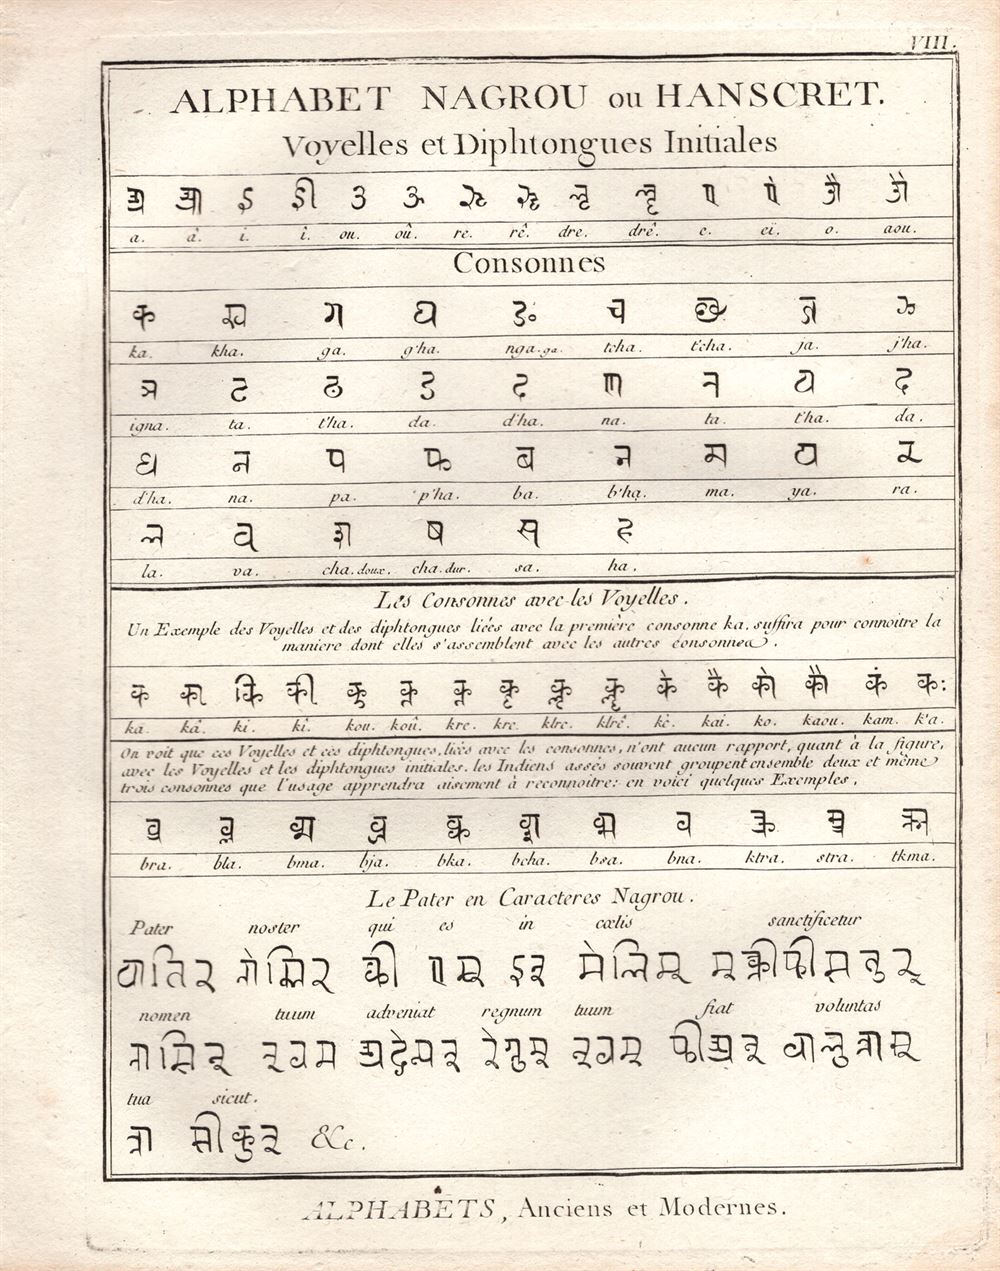 VIII.
ALPHABET NAGROU ou HANSCRET.
Voyelles et Diphtongues Initiales
अ आ इ ई उ ऊ ऋ ॠ ऌ ॡ ए ऐ ओ औ
a. â. i. î. ou. oû. re. rê. dre. drê. e. ei. o. aou.
Consonnes
क ख ग घ ङ च छ ज झ
ka. kha. ga. g'ha. nga.ga. tcha. t'cha. ja. j'ha.
ञ ट ठ ड ढ ण त थ द
igna. ta. t'ha. da. d'ha. na. ta. t'ha. da.
ध न प फ ब भ म य र
d'ha. na. pa. p'ha. ba. b'ha. ma. ya. ra.
ल व श ष स ह
la. va. cha.doux. cha.dur. sa. ha.
Les Consonnes avec les Voyelles.
Un Exemple des Voyelles et des diphtongues liées avec la première consonne ka, suffira pour connoitre la
maniere dont elles s'assemblent avec les autres consonnes.
क का कि की कु कू कृ कॄ कॢ कॣ के कै को कौ कं कः
ka. kâ. ki. kî. kou. koû. kre. kre. klre. klrê. kè. kai. ko. kaou. kam. k'a.
On voit que ces Voyelles et ces diphtongues, liées avec les consonnes, n'ont aucun rapport, quant à la figure,
avec les Voyelles et les diphtongues initiales. les Indiens assés souvent groupent ensemble deux et même
trois consonnes que l'usage apprendra aisement à reconnoitre: en voici quelques Exemples.
bra. bla. bma. bja. bka. bcha. bsa. bna. ktra. stra. tkma.
Le Pater en Caracteres Nagrou.
Pater noster qui es in cœlis sanctificetur
nomen tuum adveniat regnum tuum fiat voluntas
tua sicut.
&c.
ALPHABETS, Anciens et Modernes.